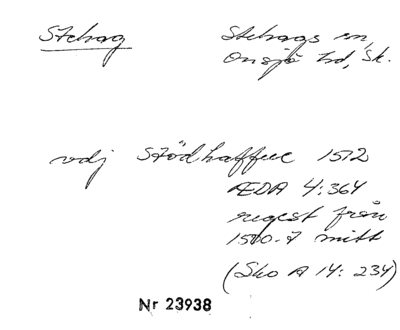 Stehag Stehags sn,
Onsjö hd, Sk.
vdj Stödhaffue 1512
ÆDA 4:364
regest från
1500-t mitt
(Sko A 14: 234)
Nr 23938